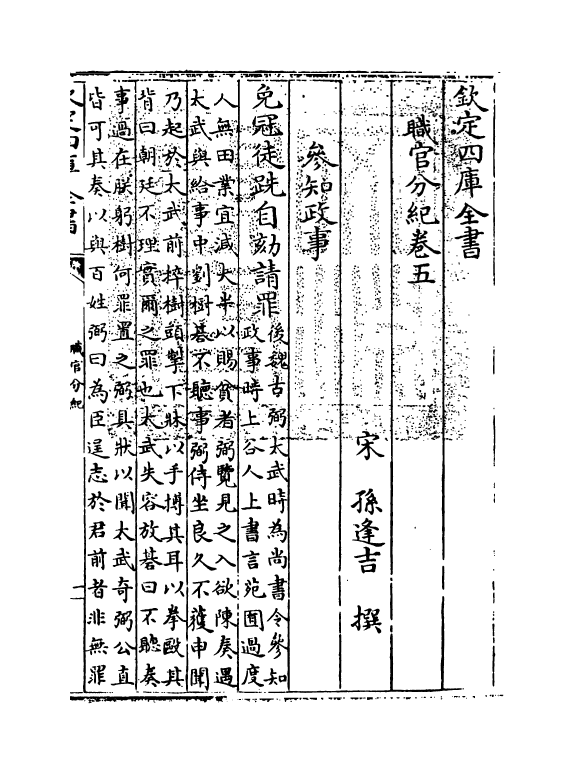 欽定四庫全書
職官分紀卷五
宋　孫逢吉　撰
參知政事
免冠徒跣自劾請罪
後魏古弼太武時為尚書令參知
政事時上谷人上書言苑囿過度
人無田業宜減大半以賜貧者弼覽見之入欲陳奏遇
太武與給事中劉樹碁不聽事弼侍坐良久不獲申聞
乃起於太武前捽樹頭掣下牀以手搏其耳以拳毆其
背曰朝廷不理實爾之罪也太武失容放碁曰不聽奏
事過在朕躬樹何罪置之弼具狀以聞太武奇弼公直
皆可其奏以與百姓弼曰為臣逞志於君前者非無罪
欽定四庫全書
職官分紀
一